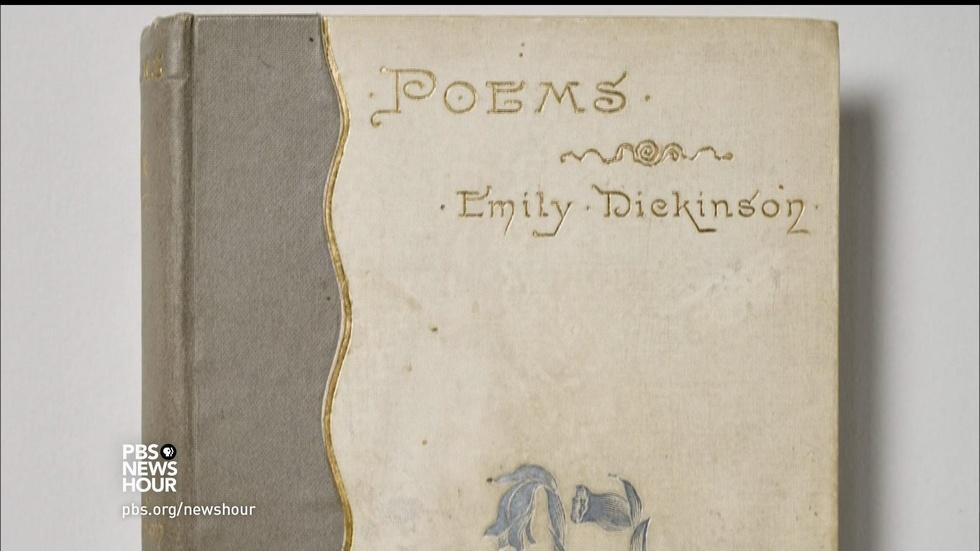 POEMS
Emily Dickinson
PBS
NEWS
HOUR
pbs.org/newshour